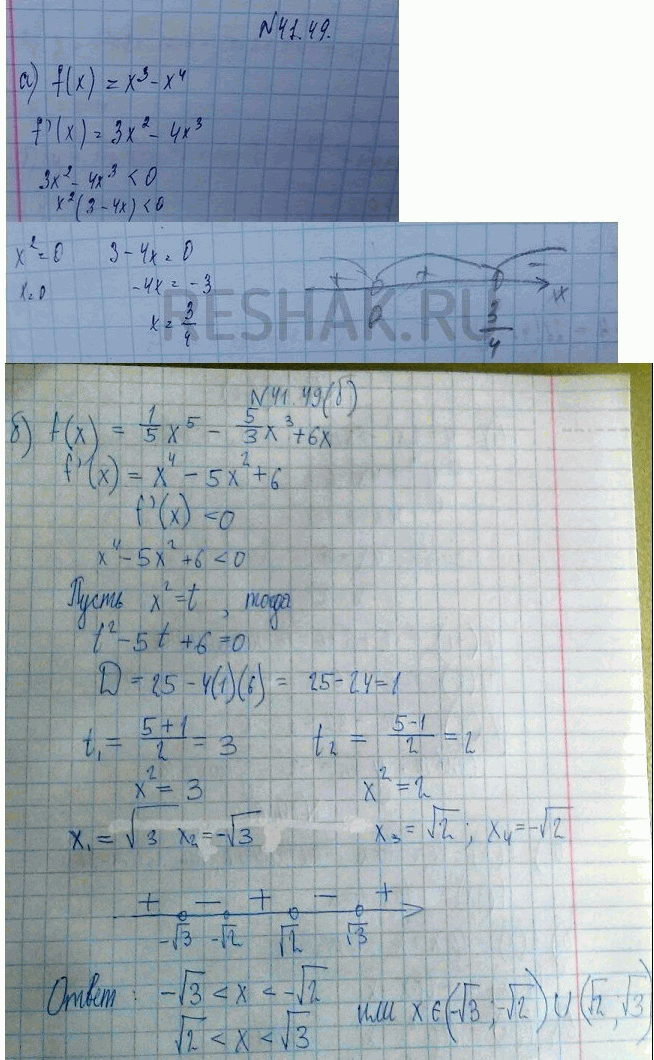 N41.49.
а) f(x) = x³ - x⁴
f'(x) = 3x² - 4x³
3x² - 4x³ < 0
x²(3 - 4x) < 0
x² = 0 3 - 4x = 0
x = 0 -4x = -3
x = 3/4
+ + -
0 3/4 x
RESHAK.RU
N41.49(б)
б) f(x) = 1/5 x⁵ - 5/3 x³ + 6x
f'(x) = x⁴ - 5x² + 6
f'(x) < 0
x⁴ - 5x² + 6 < 0
Пусть x² = t , тогда
t² - 5t + 6 = 0
D = 25 - 4(1)(6) = 25 - 24 = 1
t₁ = (5+1)/2 = 3 t₂ = (5-1)/2 = 2
x² = 3 x² = 2
x₁ = √3 x₂ = -√3 x₃ = √2 ; x₄ = -√2
+ - + - +
-√3 -√2 √2 √3
Ответ : -√3 < x < -√2 или x ∈ (-√3 ; -√2) ∪ (√2, √3)
√2 < x < √3